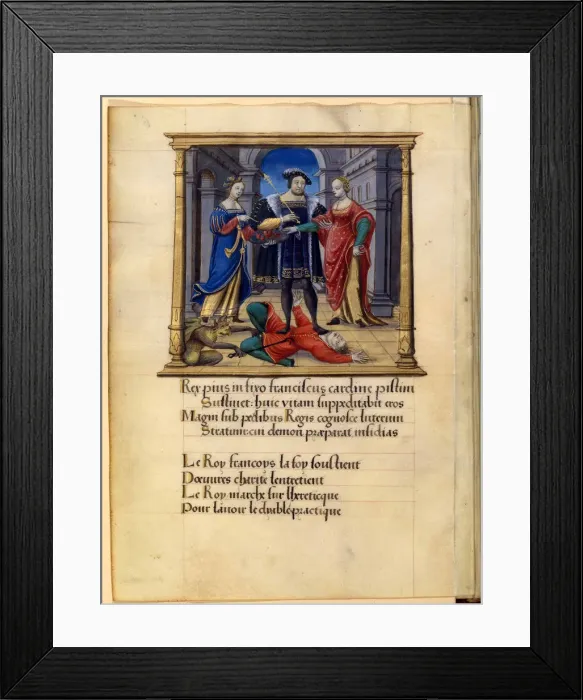 Rex pius in fixo franciscus cardine pistim
Sustinet: huic vitam suppeditabit eros
Magni sub pedibus Regis cognosce luterum
Stratum: cui demon præparat insidias
Le Roy francoys la foy soustient
Doeuvres charite lentretient
Le Roy marche sur lhereticque
Pour lavoir le diable practique